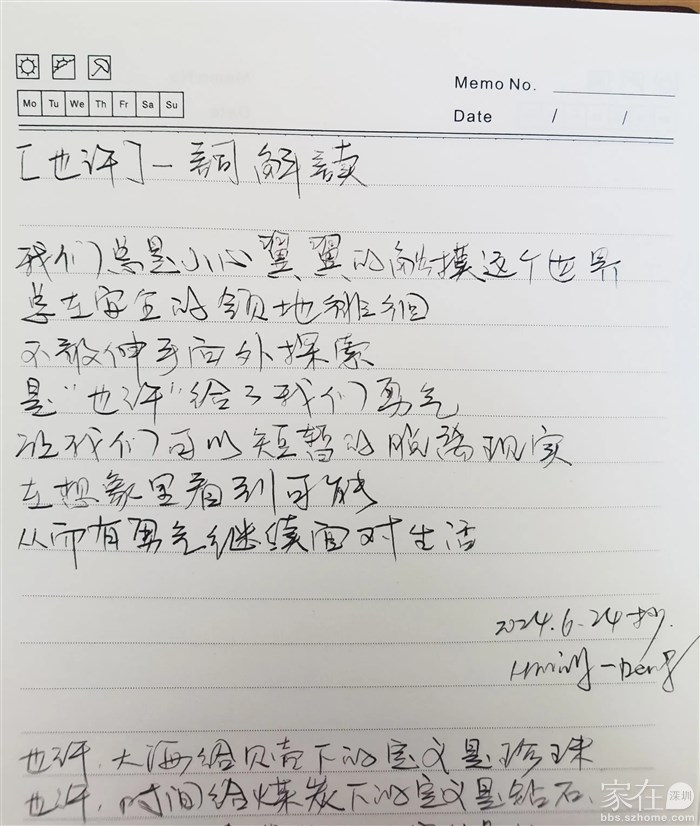 Memo No.
Mo Tu We Th Fr Sa Su
Date / /
[也许]一詞解讀
我们总是小心翼翼的触摸这个世界
总在安全的领地徘徊
不敢伸手向外探索
是“也许”给了我们勇气
让我们可以短暂的脱离现实
在想象里看到可能
从而有勇气继续面对生活
2024.6.24抄.
也许,大海给贝壳下的定义是珍珠
也许,时间给煤炭下的定义是钻石.
家在深圳
bbs.szhome.com